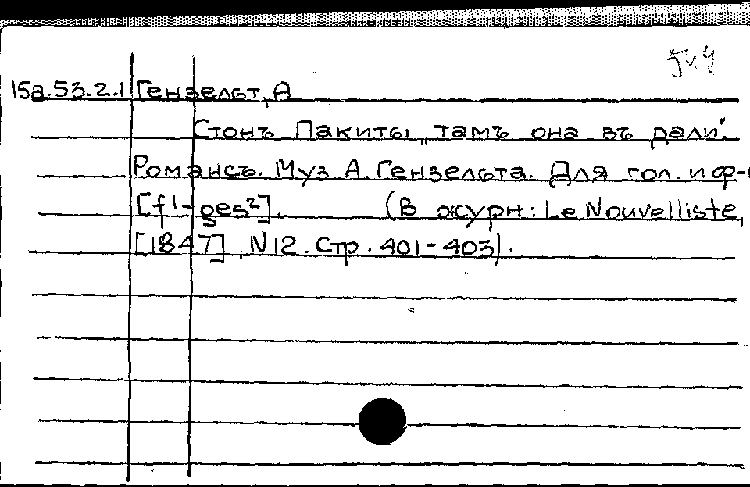 15а.53.2.1 Гензельт, А
Стонъ Пакиты „тамъ она въ дали".
Романсъ. Муз А. Гензельта. Для гол. и ф-
[f¹-ges²]. (В журн: Le Nouvelliste,
[1847] N12. Стр. 401-403).